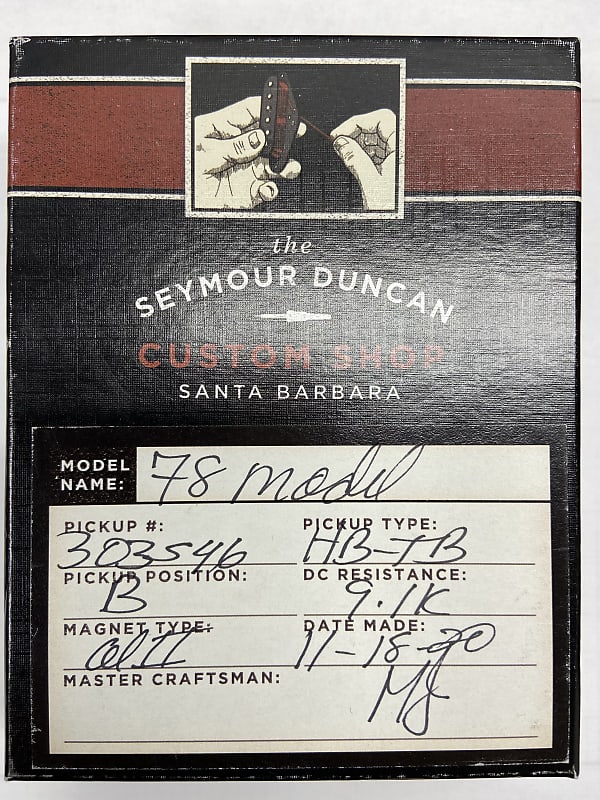 the
SEYMOUR DUNCAN
CUSTOM SHOP
SANTA BARBARA
MODEL NAME: 78 model
PICKUP #: PICKUP TYPE:
303546 HB-TB
PICKUP POSITION: DC RESISTANCE:
B 9.1K
MAGNET TYPE: DATE MADE:
al II 11-18-20
MASTER CRAFTSMAN: MJ